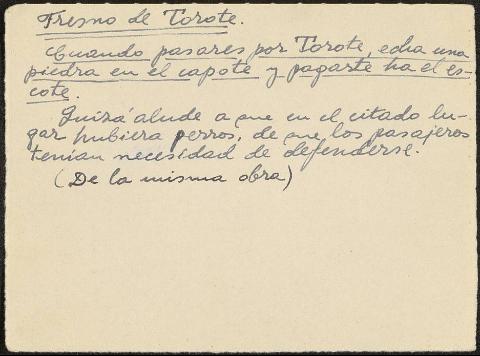 Fresno de Torote.
Cuando pasares por Torote, echa una
piedra en el capote y pagarte ha el es-
cote.
Quizá alude a que en el citado lu-
gar hubiera perros, de que los pasajeros
tenían necesidad de defenderse.
(De la misma obra)